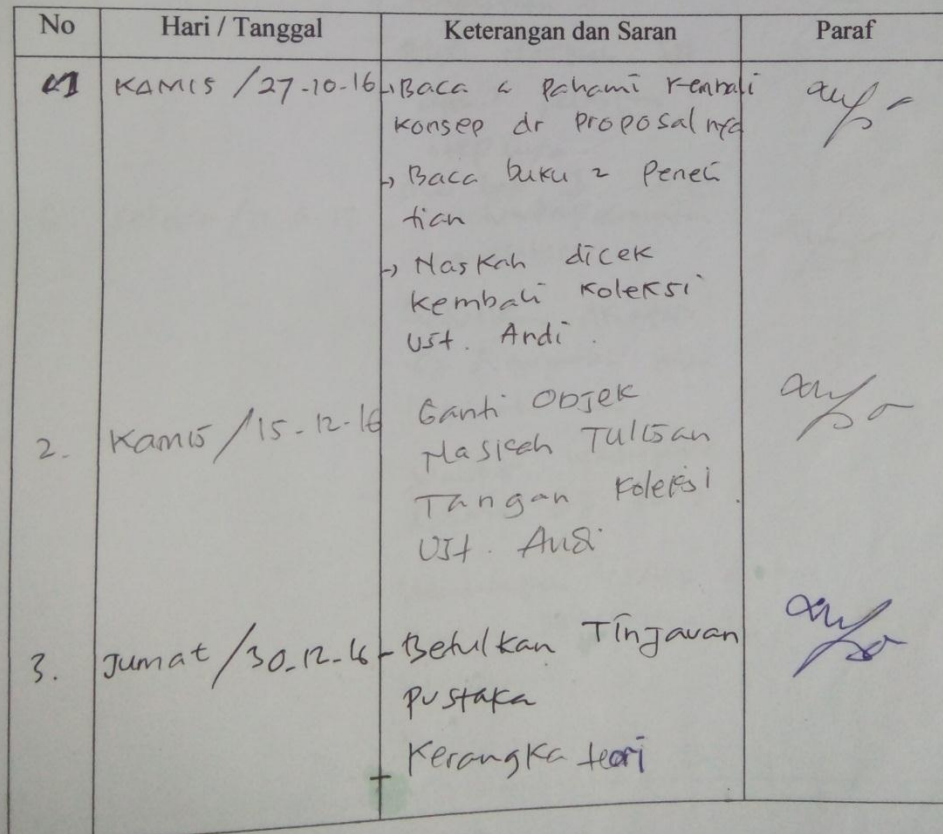 No Hari / Tanggal Keterangan dan Saran Paraf
1 KAMIS / 27-10-16 → Baca & Pahami Kembali
konsep dr Proposalnya
→ Baca buku2 Peneli
tian
→ Naskah dicek
kembali koleksi
Ust. Andi.
2. Kamis / 15-12-16 Ganti Objek
Naskah Tulisan
Tangan Koleksi
Ust. Andi
3. Jumat / 30-12-16 - Betulkan Tinjauan
Pustaka
- Kerangka teori